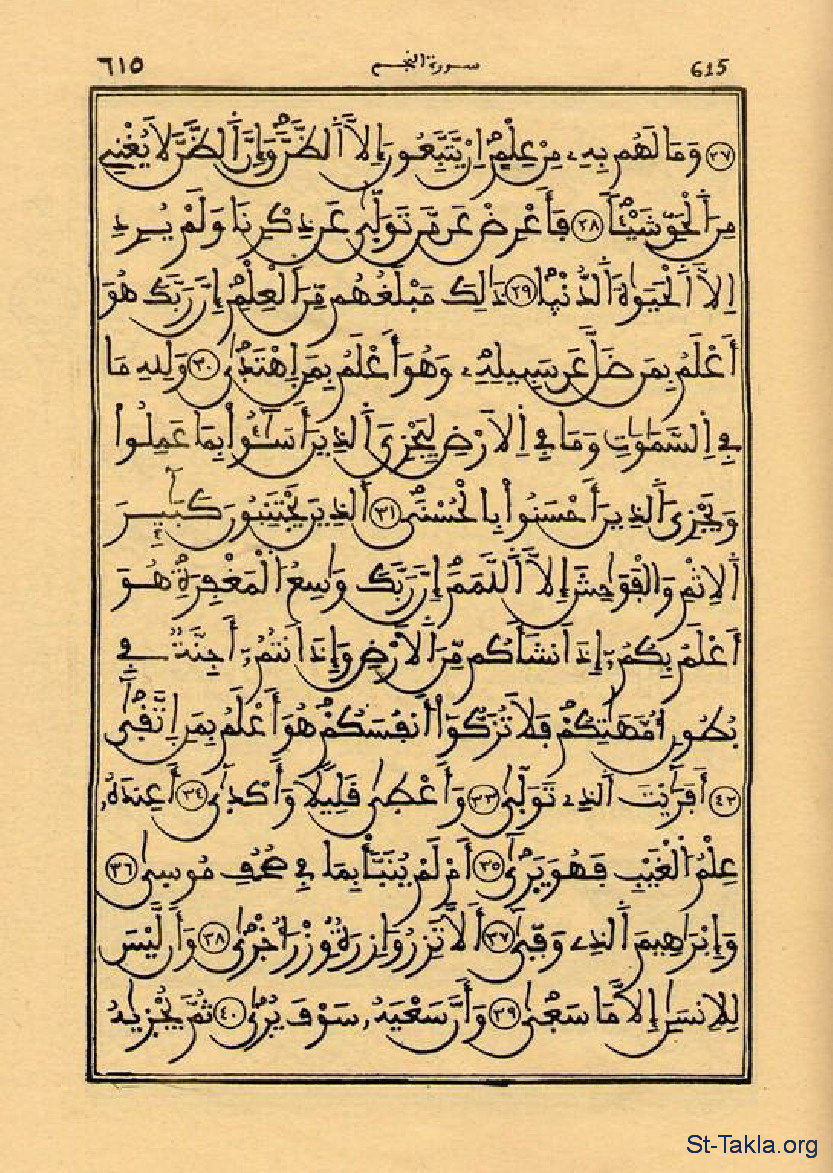 ٦١٥ سورة النجم 615
٢٧ وَمَا لَهُم بِهِۦ مِنْ عِلْمٍ اِنْ يَّتَّبِعُونَ إِلَّا اَ۬لظَّنَّۖ وَإِنَّ اَ۬لظَّنَّ لَا يُغْنِے
مِنَ اَ۬لْحَقِّ شَيْـٔاٗۖ ٢٨ فَأَعْرِضْ عَن مَّن تَوَلّ۪يٰ عَن ذِكْرِنَا وَلَمْ يُرِدِ
اِلَّا اَ۬لْحَيَوٰةَ اَ۬لدُّنْي۪اۖ ٢٩ ذَٰلِكَ مَبْلَغُهُم مِّنَ اَ۬لْعِلْمِۖ إِنَّ رَبَّكَ هُوَ
أَعْلَمُ بِمَن ضَلَّ عَن سَبِيلِهِۦ وَهُوَ أَعْلَمُ بِمَنِ اِ۪هْتَد۪يٰۖ ٣٠ وَلِلهِ مَا
فِے اِ۬لسَّمَٰوَٰتِ وَمَا فِے اِ۬لَارْضِ لِيَجْزِيَ اَ۬لذِينَ أَسَٰٓـُٔواْ بِمَا عَمِلُواْ
وَيَجْزِيَ اَ۬لذِينَ أَحْسَنُواْ بِالْحُسْنَيۖ ٣١ اَ۬لذِينَ يَجْتَنِبُونَ كَبَٰٓئِرَ
اَ۬لِاثْمِ وَالْفَوَٰحِشَ إِلَّا اَ۬للَّمَمَۖ إِنَّ رَبَّكَ وَٰسِعُ اُ۬لْمَغْفِرَةِۖ هُوَ
أَعْلَمُ بِكُمُۥٓ إِذَ اَنشَأَكُم مِّنَ اَ۬لَارْضِ وَإِذَ اَنتُمُۥٓ أَجِنَّةٞ فِے
بُطُونِ أُمَّهَٰتِكُمْۖ فَلَا تُزَكُّوٓاْ أَنفُسَكُمْۖ هُوَ أَعْلَمُ بِمَنِ اِ۪تَّق۪يٰٓۖ
٤٢ أَفَرَٰٓيْتَ اَ۬لذِے تَوَلّ۪يٰ ٣٣ وَأَعْط۪يٰ قَلِيلاٗ وَأَكْد۪يٰٓ ٣٤ أَعِندَهُۥ
عِلْمُ اُ۬لْغَيْبِ فَهُوَ يَر۪يٰٓۖ ٣٥ أَمْ لَمْ يُنَبَّأْ بِمَا فِے صُحُفِ مُوس۪يٰ ٣٦
وَإِبْرَٰهِيمَ اَ۬لذِے وَفّ۪يٰٓ ٣٧ أَلَّا تَزِرُ وَازِرَةٞ وِزْرَ أُخْر۪يٰ ٣٨ وَأَن لَّيْسَ
لِلِانسَٰنِ إِلَّا مَا سَع۪يٰ ٣٩ وَأَنَّ سَعْيَهُۥ سَوْفَ يُر۪يٰ ٤٠ ثُمَّ يُجْز۪يٰهُ
St-Takla.org